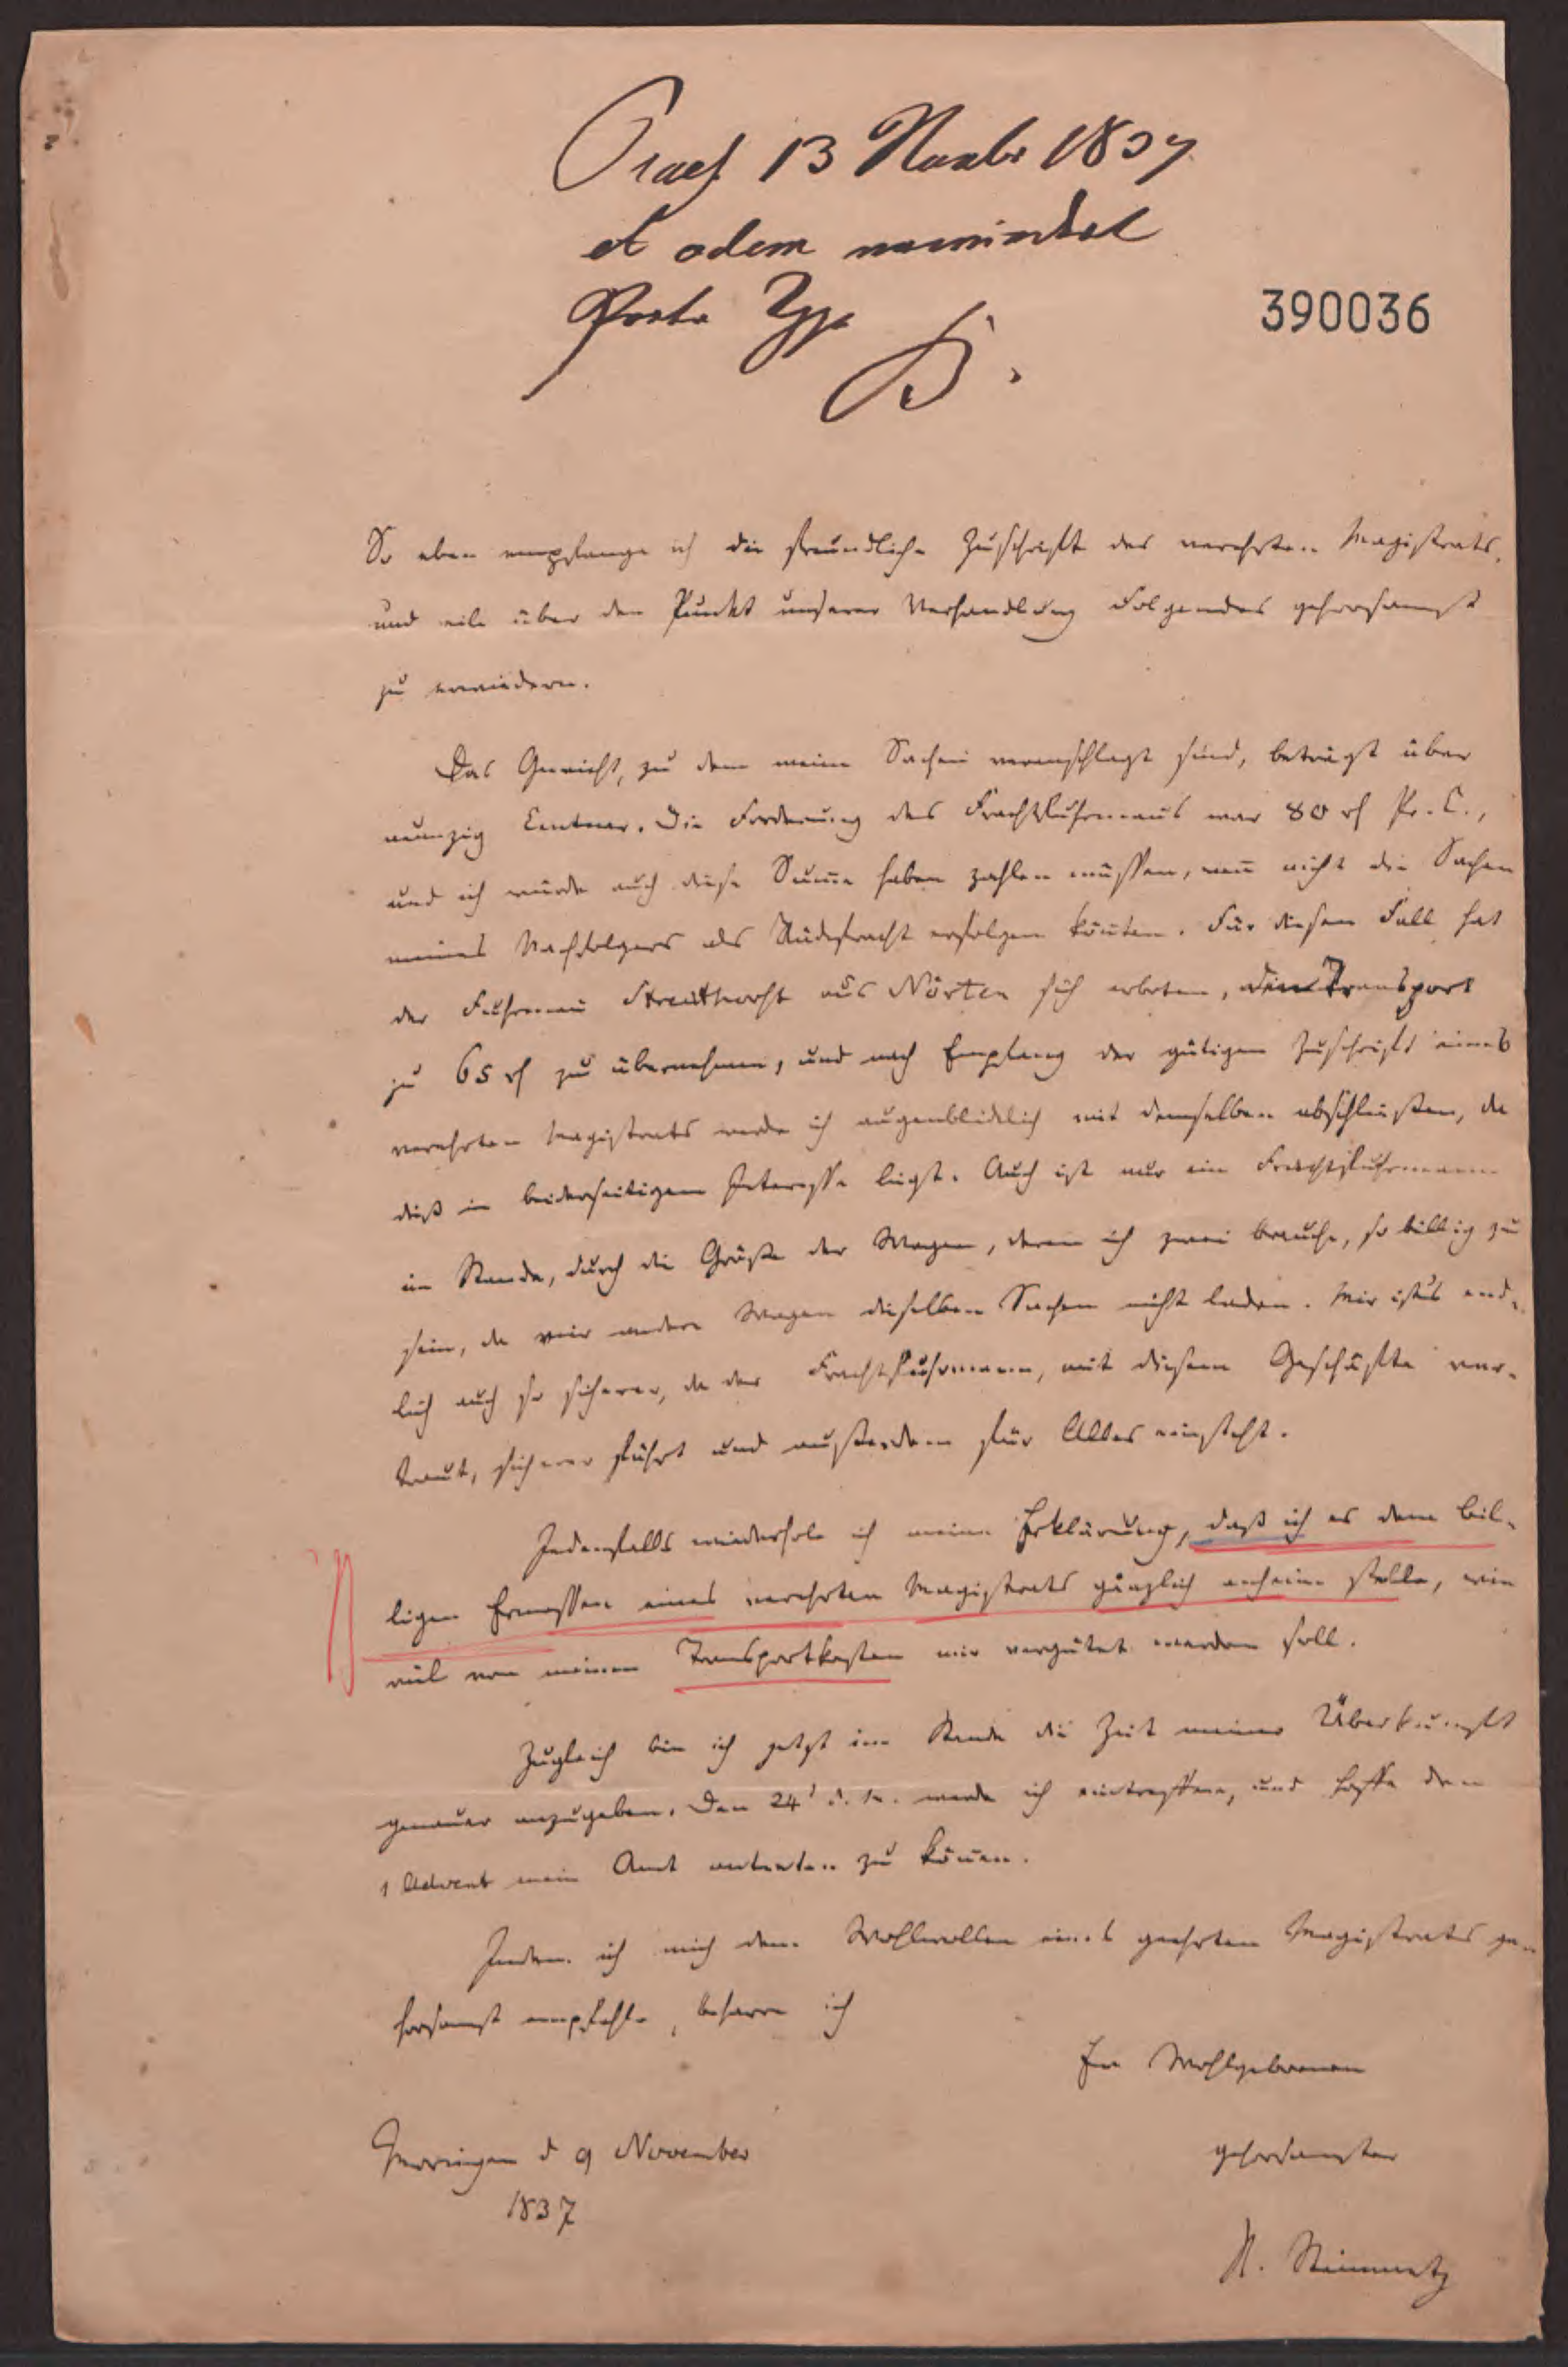 Praes 13 Novbr 1837
et eodem
Porto
B.
390036
So eben empfange ich die freundliche Zuschrift des verehrten Magistrats,
und eile über den Punkt unserer Verhandlung Folgendes gehorsamst
zu erwiedern.
Das Gewicht, zu dem meine Sachen veranschlagt sind, beträgt über
neunzig Centner. Die Forderung des Frachtfuhrmanns war 80 rth Pr. C.,
und ich würde auch diese Summe haben zahlen müssen, wenn nicht die Sachen
meines Nachfolgers als Rückfracht erfolgen könnten. Für diesen Fall hat
der Fuhrmann aus Nörten sich erboten, den Transport
zu 65 rth zu übernehmen, und nach Empfang der gütigen Zuschrift eines
verehrten Magistrats werde ich augenblicklich mit demselben abschließen, da
dieß in beiderseitigem Interesse liegt. Auch ist nur ein Frachtfuhrmann
im Stande, durch die Größe der Wagen, deren ich zwei brauche, so billig zu
sein, da vier andere Wagen dieselben Sachen nicht laden. Mir ists end-
lich auch so sicherer, da der Frachtfuhrmann, mit diesem Geschäfte ver-
traut, sicherer führt und außerdem für Alles einsteht.
Jedenfalls wiederhole ich meine Erklärung, daß ich es dem bil-
ligen Ermessen eines verehrten Magistrats gänzlich anheim stelle, wie
viel von meinen Transportkosten mir vergütet werden soll.
Zugleich bin ich jetzt im Stande die Zeit meiner Überkunft
genauer anzugeben. Den 24t d. M. werde ich eintreffen, und hoffe den
1 Advent mein Amt antreten zu können.
Indem ich mich dem Wohlwollen eines geehrten Magistrats ge-
horsamst empfehle, beharre ich
Ew Wohlgeboren
Moringen d 9 November
gehorsamster
1837
Steinmetz